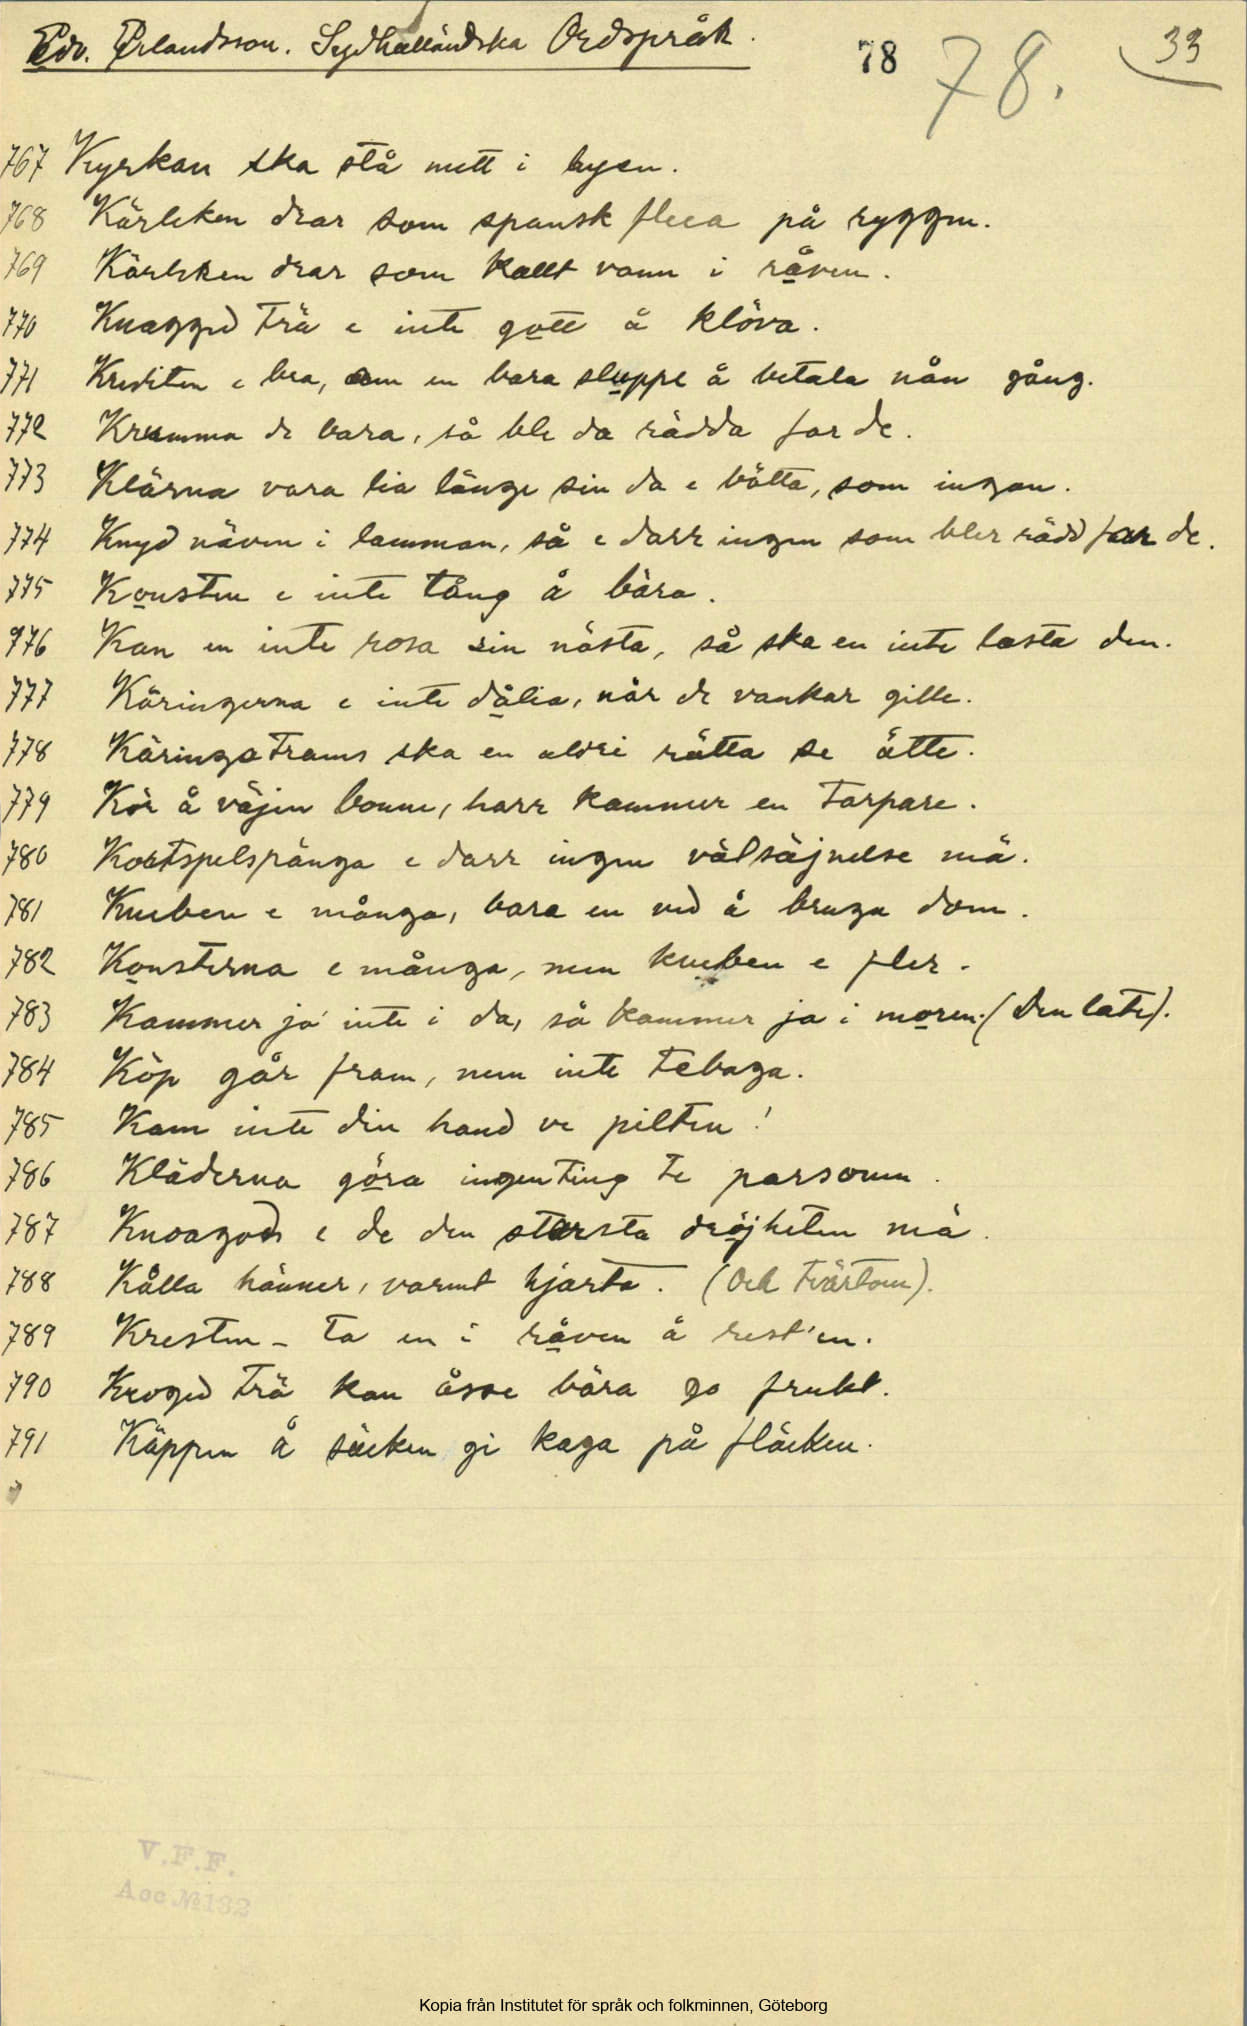 Edv. Erlandsson. Sydhalländska Ordspråk.
78 78. 33
767 Kyrkan ska stå mett i byen.
768 Kärleken drar som spansk flua på ryggen.
769 Kärleken drar som kallt vann i råven.
770 Knagged trä e inte gott å klöva.
771 Krediten e bra, om en bara sluppe å betala nån gång.
772 Kramma de bara, så ble da rädda far de.
773 Klärna vara lia länge sin da e bötta, som ingan.
774 Knyd näven i lamman, så e darr ingen som bler rädd far de.
775 Konsten e inte tång å bära.
776 Kan en inte rosa sin nästa, så ska en inte lasta den.
777 Käringerna e inte dålia, når de vankar gille.
778 Käringatrams ska en aldri rätta se ätte.
779 Kör å väjen bonne, harr kammer en tarpare.
780 Koatspelspänga e darr ingen välsäjnelse mä.
781 Kneben e många, bara en ved å bruga dom.
782 Konsterna e många, men kneben e fler.
783 Kammer ja inte i da, så kammer ja i moren. (Den late).
784 Köp går fram, men inte tebaga.
785 Kam inte din hand ve pilten!
786 Kläderna göra ingenting te parsonen.
787 Knoagods e de den starsta dröjheten mä.
788 Kålla hänner, varmt hjarta. (Och tvärtom).
789 Kresten - ta en i råven å rest'en.
790 Kroged trä kan åsse bära go frukt.
791 Käppen å säcken gi kaga på fläcken.
V.F.F.
Acc №132
Kopia från Institutet för språk och folkminnen, Göteborg